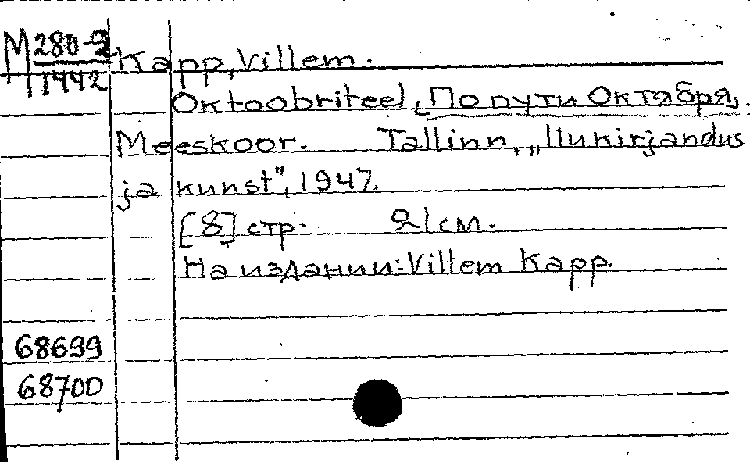 М 280-2
1442
Kapp, Villem.
Oktoobriteel, (По пути Октября).
Meeskoor. Tallinn, „Ilukirjandus
ja kunst", 1947.
[8] стр. 21 см.
На издании: Villem Kapp.
68699
68700